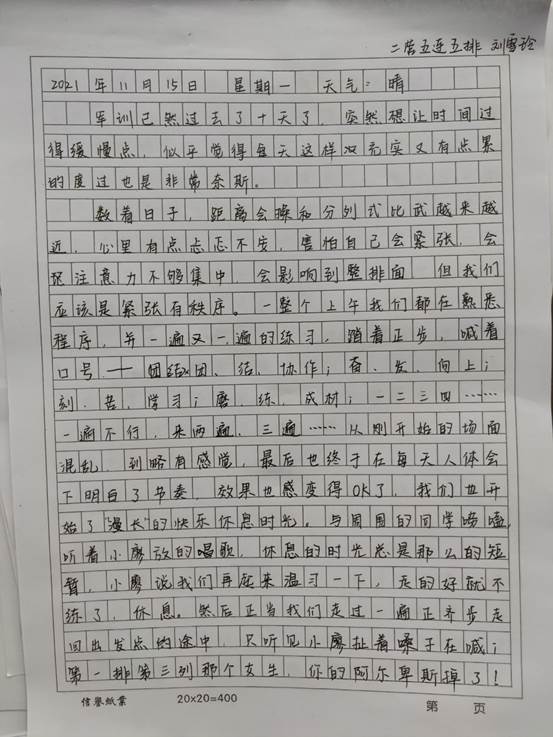 二营五连五排 刘雪玲
2021年11月15日 星期一 天气：晴
军训已然过去了十天了，突然想让时间过
得缓慢点，似乎觉得每天这样双充实又有点累
的度过也是非常奈斯。
数着日子，距离会操和分列式比武越来越
近，心里有点忐忑不安，害怕自己会紧张，会
因注意力不够集中，会影响到整排面 但我们
应该是紧张有秩序。一整个上午我们都在熟悉
程序，并一遍又一遍的练习，踏着正步，喊着
口号——团结、团、结、协作；奋、发、向上；
刻、苦、学习；磨、练、成材；一二三四……
一遍不行，来两遍、三遍……从刚开始的场面
混乱，到略有感觉，最后也终于在每天人体会
下明白了节奏，效果也感变得OK了，我们也开
始了"漫长"的快乐休息时光。与周围的同学唠嗑，
听着小廖放的唱歌，休息的时光总是那么的短
暂，小廖说我们再起来温习一下，走的好就不
练了，休息。然后正当我们走过一遍正齐步走
回出发点的途中，只听见小廖扯着嗓子在喊；
第一排第三列那个女生，你的阿尔卑斯掉了！
信誉纸业 20×20=400 第 页